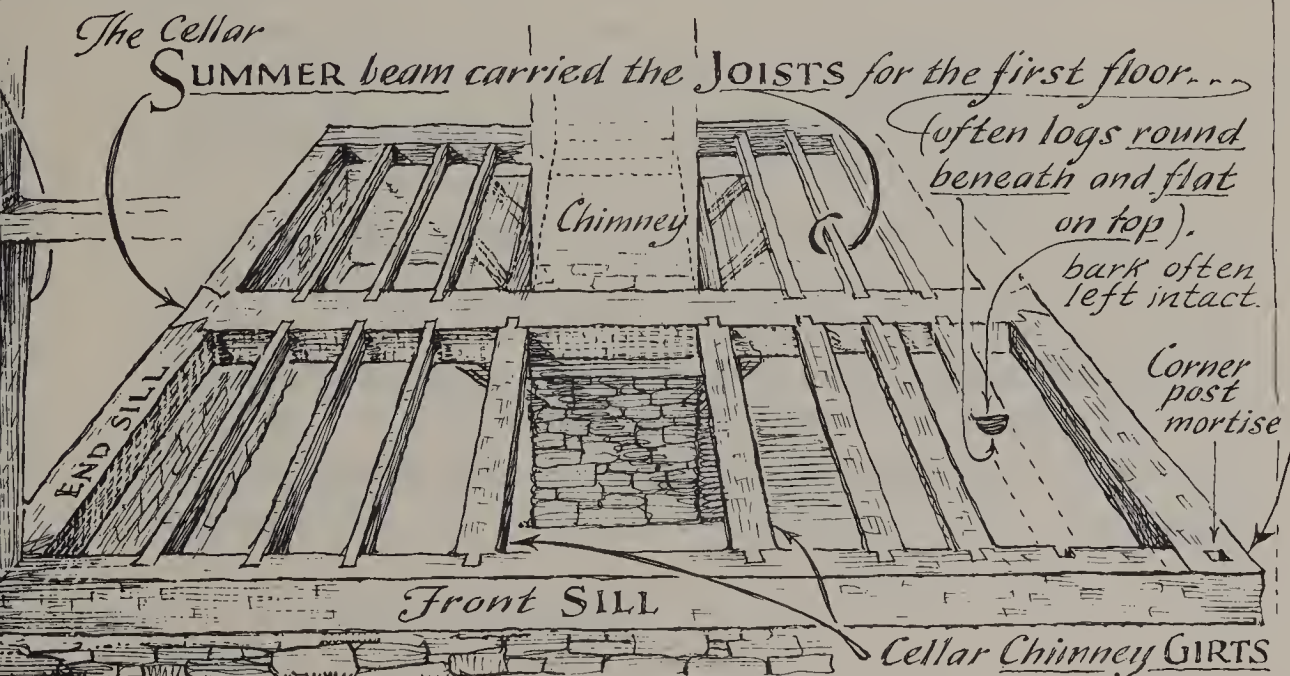 The Cellar
SUMMER beam carried the JOISTS for the first floor...
(often logs round
beneath and flat
on top).
bark often
left intact.
Chimney
Corner
post
mortise
END SILL
Front SILL
Cellar Chimney GIRTS